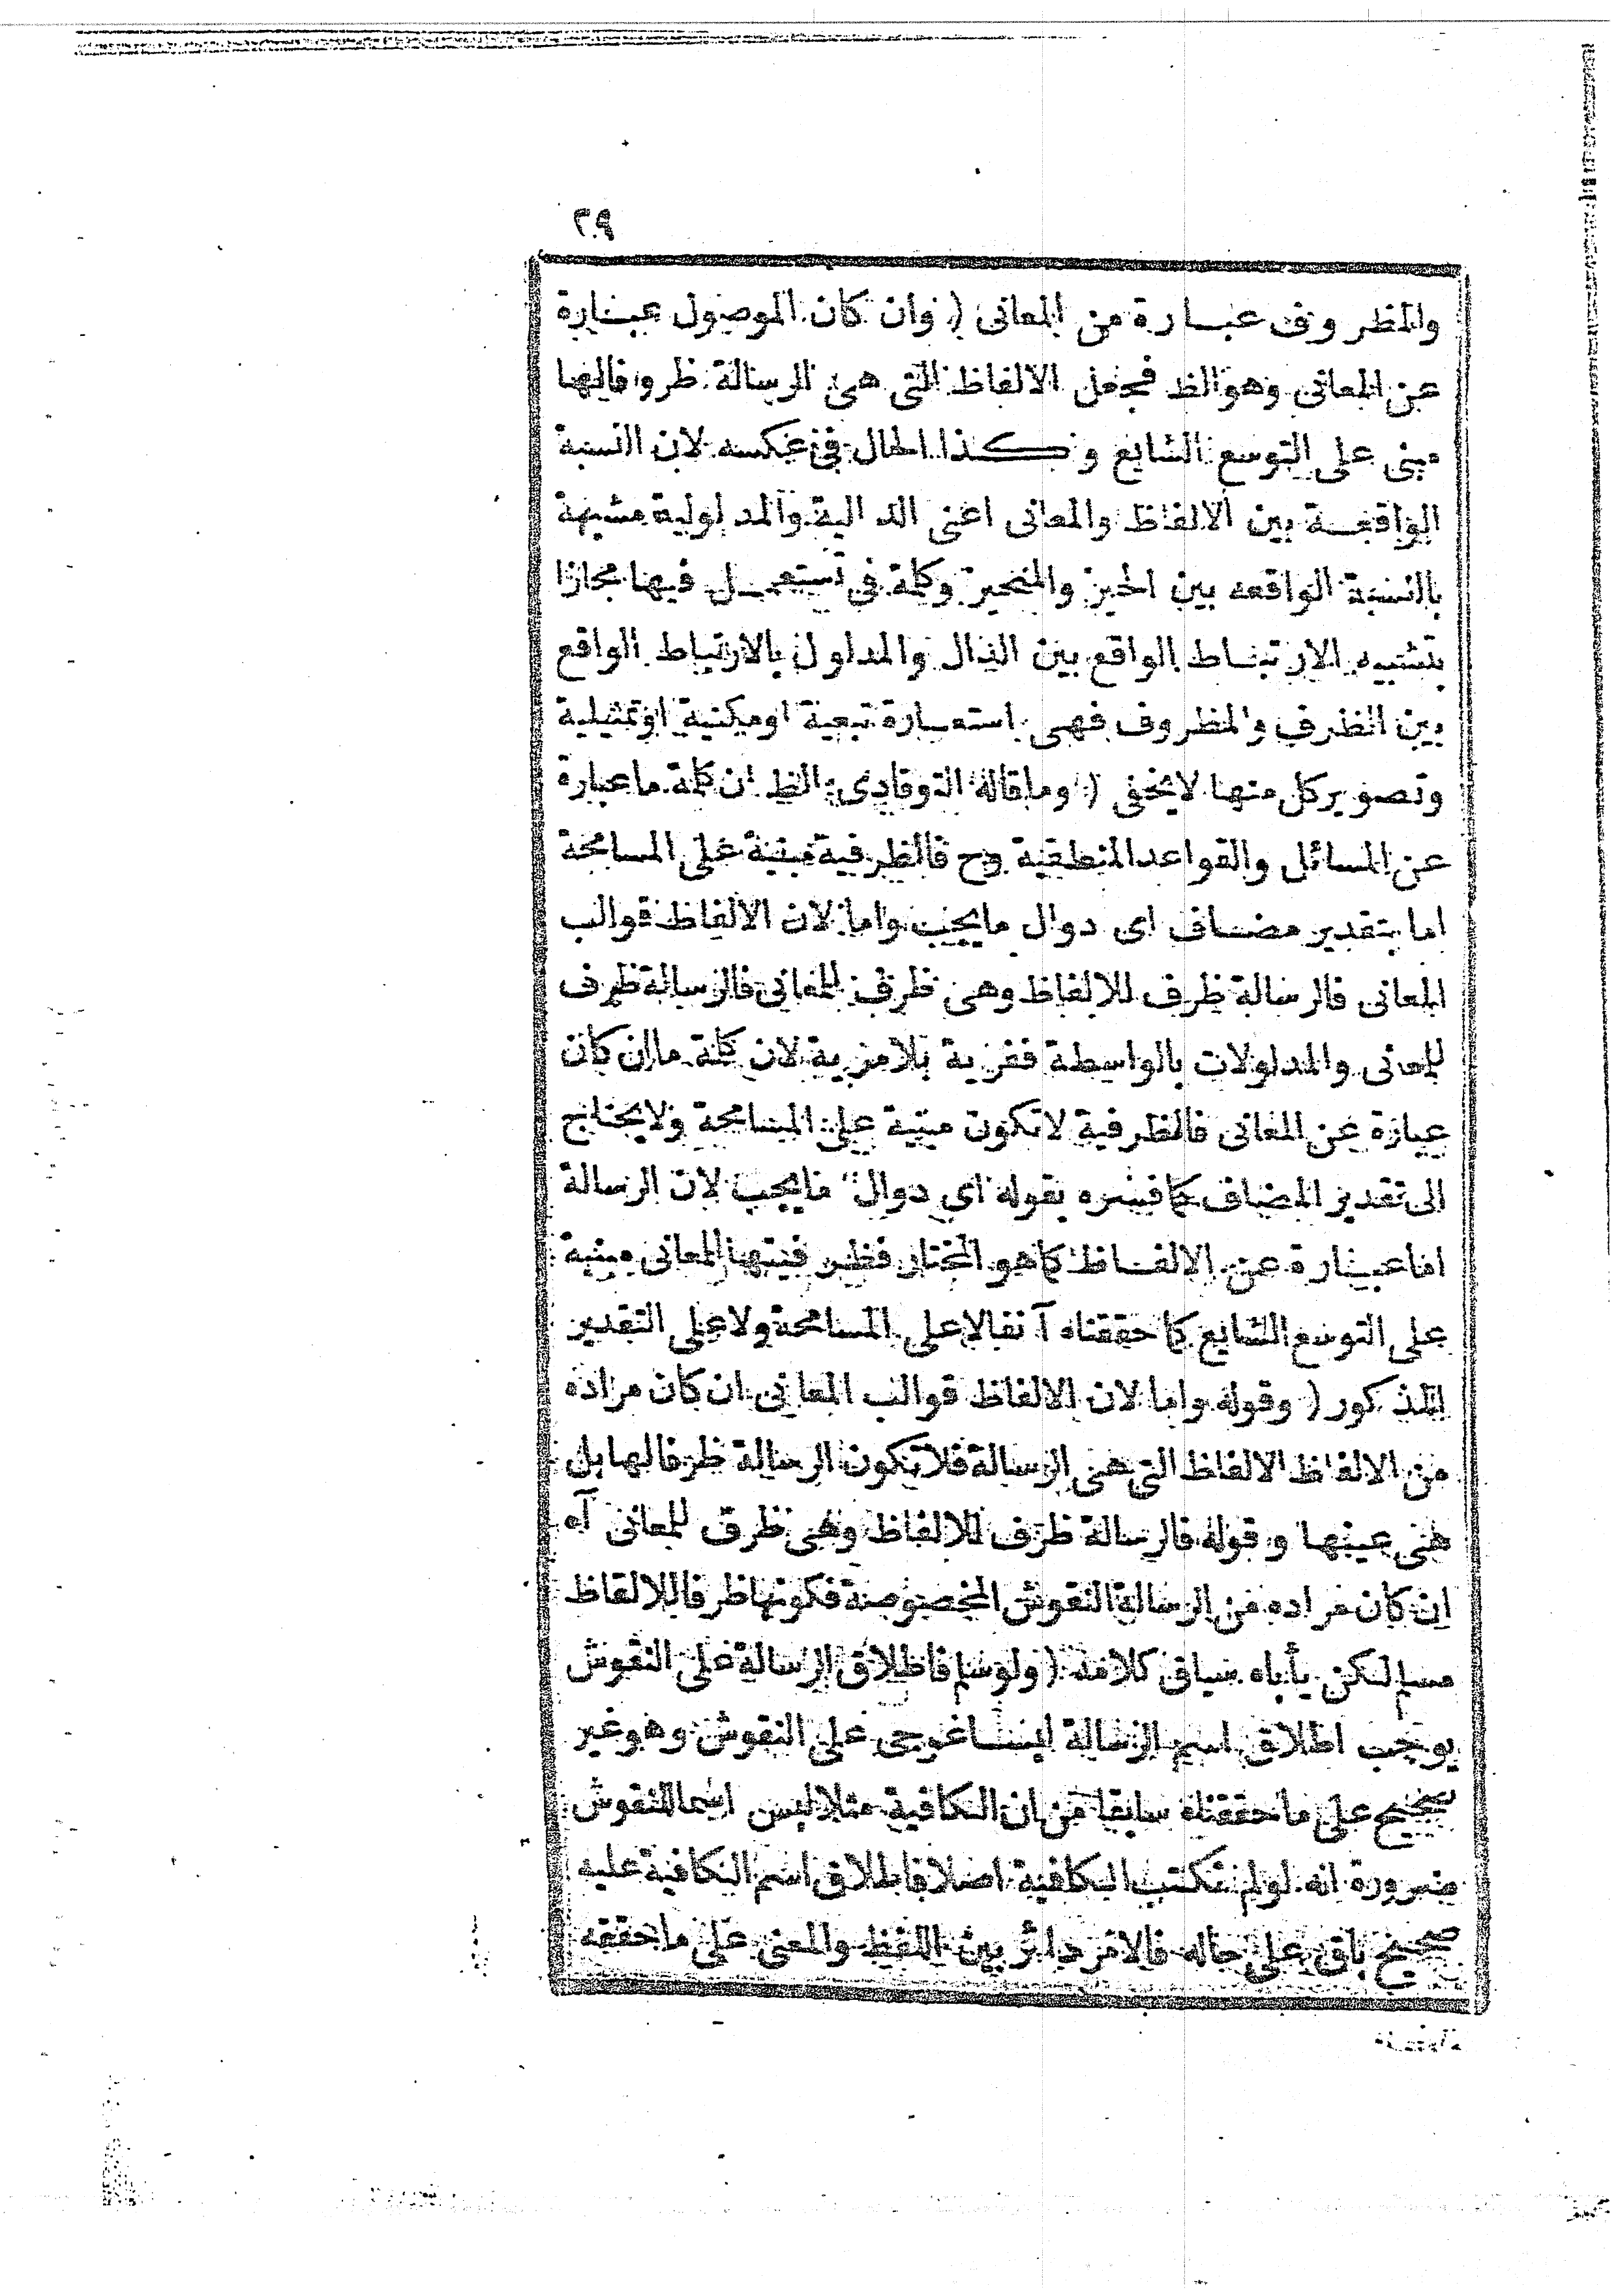 ٢٩
والمظروف عبارة من المعانى ( وان كان الموصول عبارة
عن المعانى وهو الظ فجعل الالفاظ التى هى الرسالة ظروفا لها
مبنى على التوسع الشايع وكذا الحال فى عكسه لان النسبة
الواقعة بين الالفاظ والمعانى اعنى الدالية والمدلولية مشبهة
بالنسبة الواقعه بين الحيز والمتحيز وكلمة فى تستعمل فيها مجازا
بتشبيه الارتباط الواقع بين الدال والمدلول بالارتباط الواقع
بين الظرف والمظروف فهى استعارة تبعية او مكنية او تمثيلية
وتصوير كل منها لا يخفى ( وما قاله التوقادى الظ ان كلمة ما عبارة
عن المسائل والقواعد المنطقية وح فالظرفية مبنية على المسامحة
اما بتقدير مضاف اى دوال ما يجب واما لان الالفاظ قوالب
المعانى فالرسالة ظرف للالفاظ وهى ظرف للمعانى فالرسالة ظرف
للمعانى والمدلولات بالواسطة ففرية بلامزية لان كلمة ما ان كان
عبارة عن المعانى فالظرفية لا تكون مبنية على المسامحة ولا يحتاج
الى تقدير المضاف كما فسره بقوله اى دوال ما يجب لان الرسالة
اما عبارة عن الالفاظ كما هو المختار فظرفيتها للمعانى مبنية
على التوسع الشايع كما حققناه آنفا لا على المسامحة ولا على التقدير
المذكور ( وقوله واما لان الالفاظ قوالب المعانى ان كان مراده
من الالفاظ الالفاظ التى هى الرسالة فلا تكون الرسالة ظرفا لها بل
هى عينها وقوله فالرسالة ظرف للالفاظ وهى ظرف للمعانى آه
ان كان مراده من الرسالة النقوش المخصوصة فكونها ظرفا للالفاظ
مسلم لكن يأباه سياق كلامه ( ولو سلم فاطلاق الرسالة على النقوش
يوجب اطلاق اسم الرسالة ايساغوجى على النقوش وهو غير
صحيح على ما حققناه سابقا من ان الكافية مثلا ليس اسما للنقوش
ضرورة انه لو لم تكتب الكافية اصلا فاطلاق اسم الكافية عليه
صحيح باق على حاله فالامر دائر بين اللفظ والمعنى على ما حققه